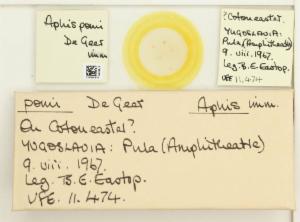 Aphis pomi
De Geer
imm.
?Cotoneaster.
YUGOSLAVIA:
Pula (Amphitheatre)
9. viii. 1967.
Leg. B.E. Eastop.
VFE 11.474
pomi De Geer Aphis imm.
On Cotoneaster?
YUGOSLAVIA: Pula (Amphitheatre)
9. viii. 1967.
Leg. B.E. Eastop.
VFE. 11.474.